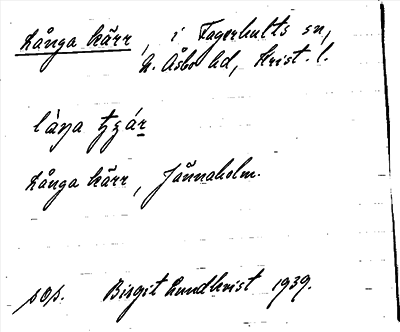 Långa kärr, i Fagerhults sn,
N. Åsbo hd, Krist. l.
låŋa tɟɛ́r
Långa kärr, Jännaholm.
sop. Birgit Lundkvist 1939.